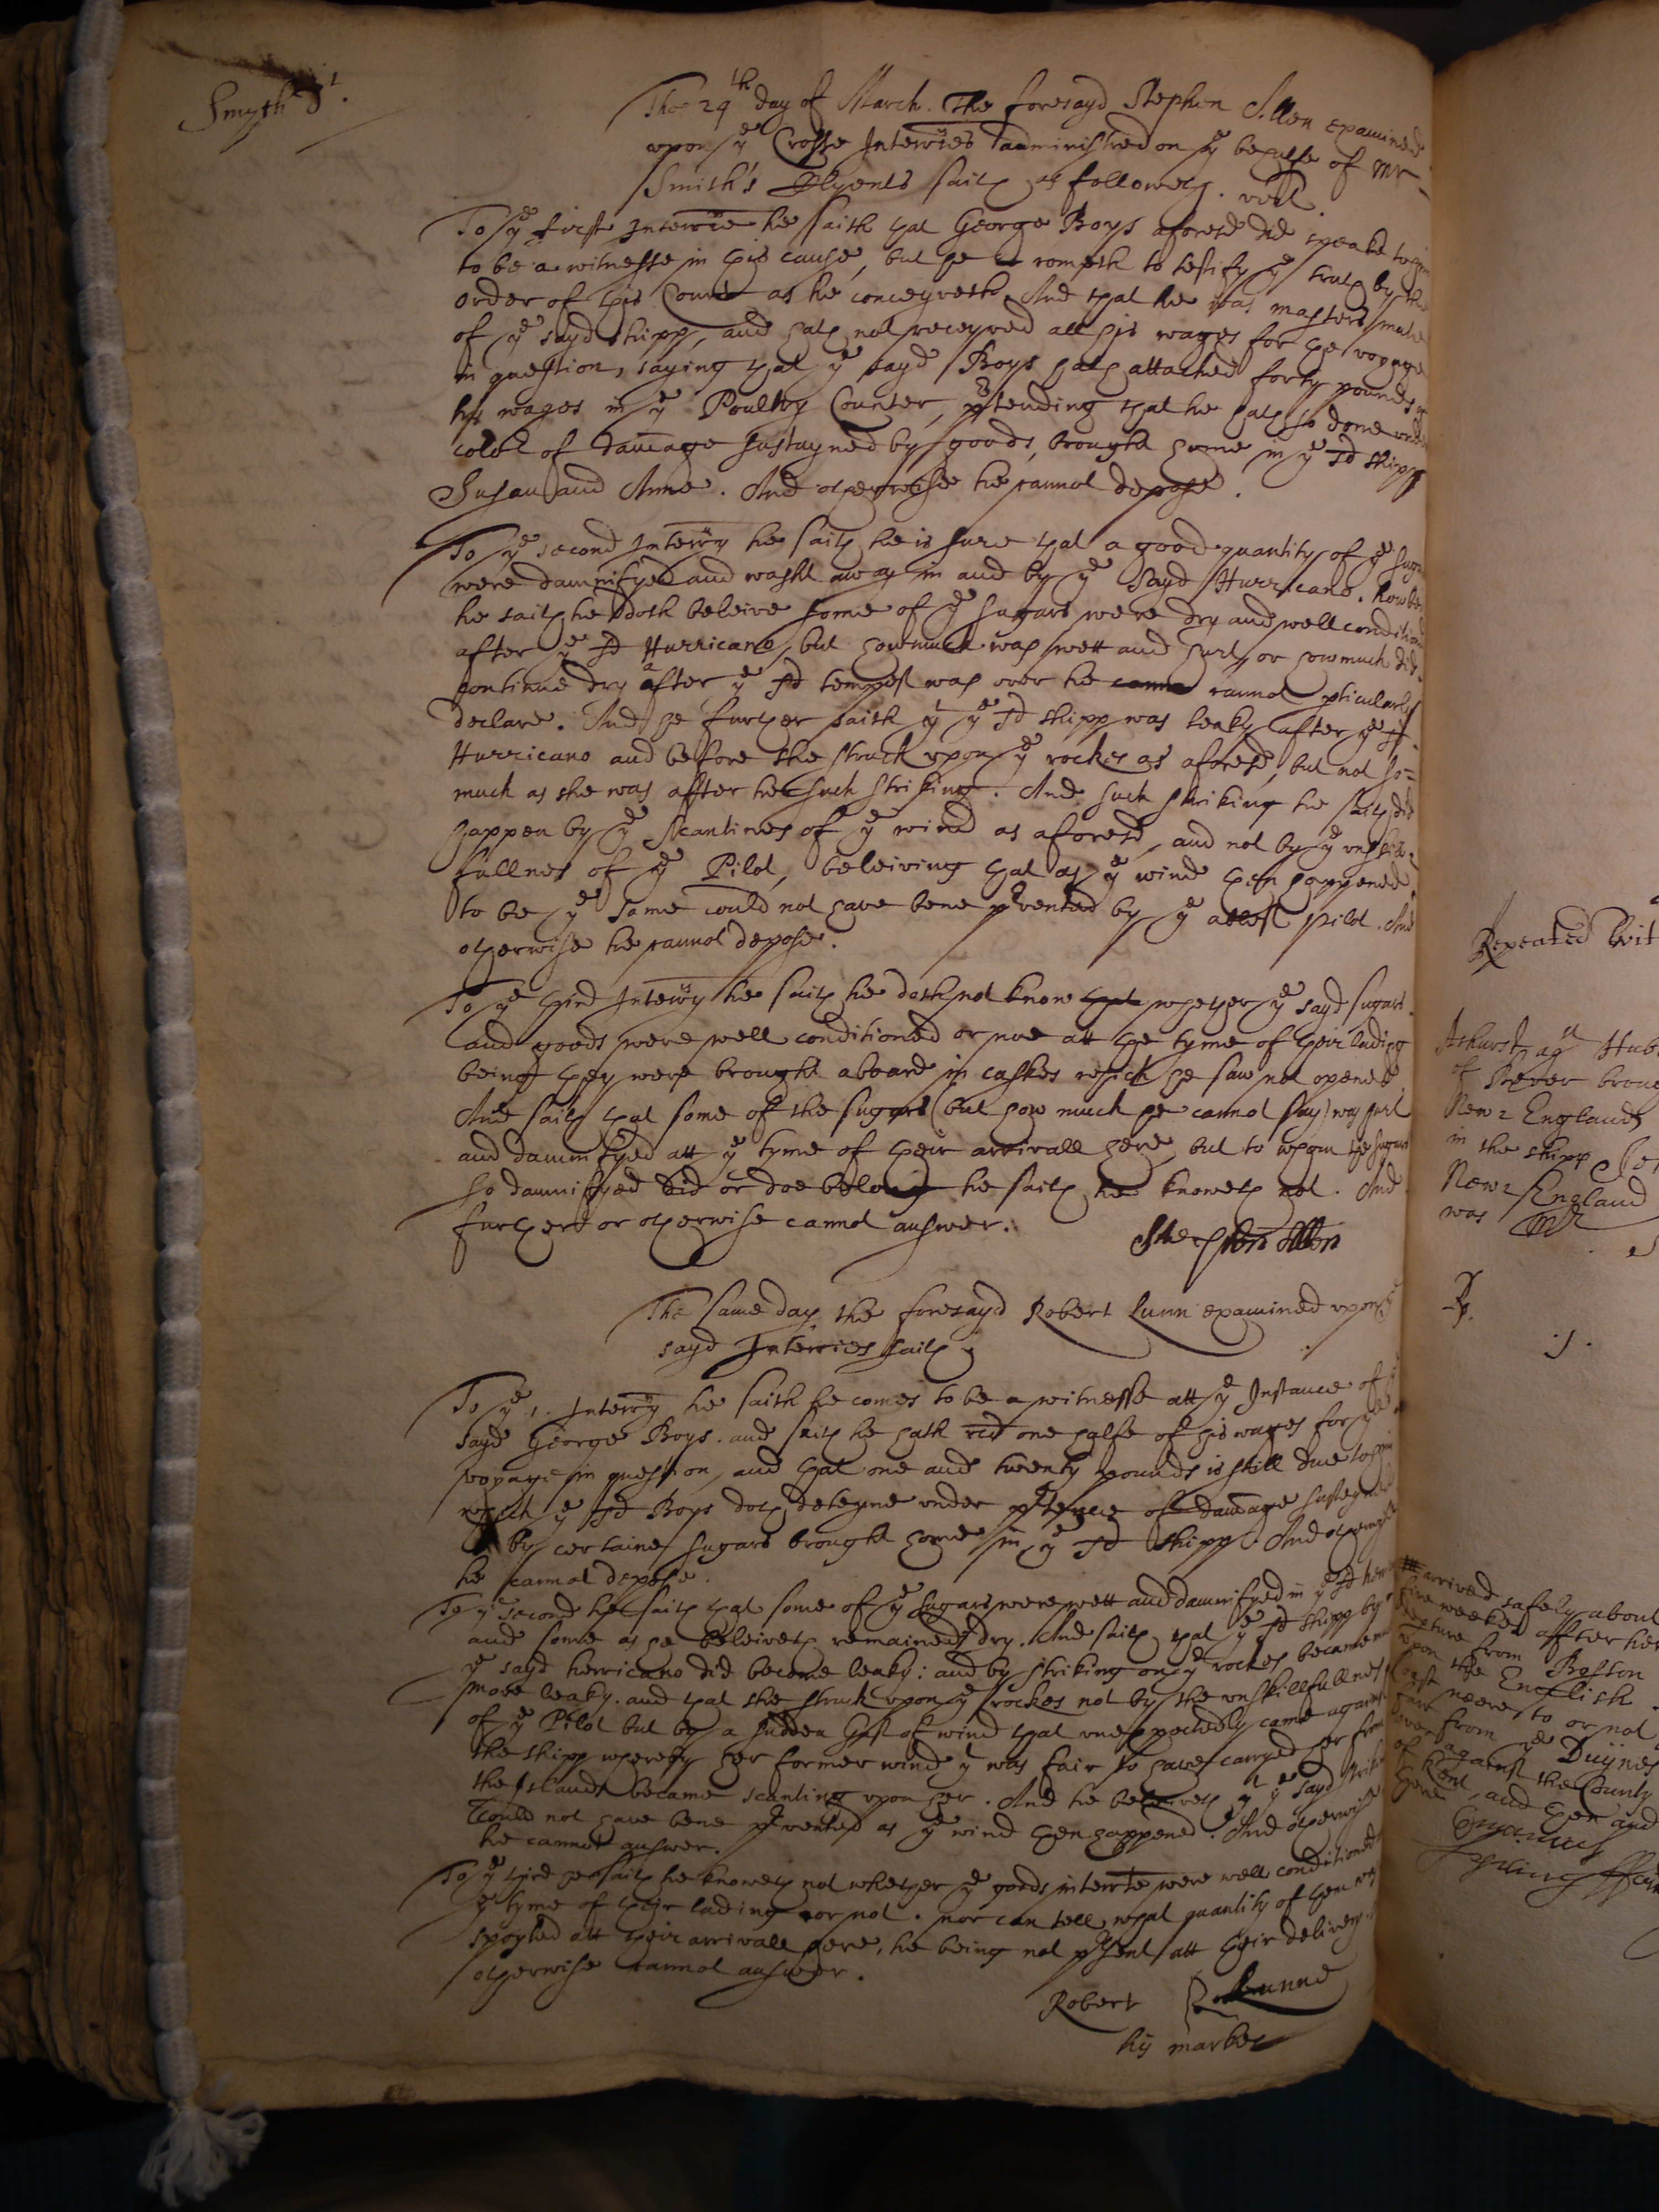 Smyth 5t.
The 29th day of March. The foresayd Stephen Allen examined
upon ye Crosse Interries administred on ye behalfe of Mr
Smith's Clyents saith as followeth. vizt.
To ye first Interrie he saith that George Boys aforesd did speake to him
to be a witnesse in this cause, but he cometh to testify ye truth by the
order of this Court as he conceyveth. And that he was masters mate
of ye sayd shipp, and hath not receyved all his wages for the voyage
in question, saying that ye sayd Boys hath attached forty pounds of
his wages in ye Poultry Counter, prtending that he hath so done under
color of damage sustayned by goods, brought home in ye sd shipp
Susan and Anne. And otherwise he cannot depose.
To ye second Interry he saith he is sure that a good quantity of ye sugars
were damnifyed and washt away in and by ye sayd Hurricano. howbeit
he saith he doth beleive some of ye sugars were dry and well conditioned
after ye sd Hurricano, but howmuch was wett and hurt, or howmuch did
continue dry after ye sd tempest was over he cannot pticularly
declare. And he further saith yt ye sd shipp was leaky after ye sd
Hurricano and before she struck upon ye rockes as aforesd, but not so=
much as she was after her such striking. And such striking he saith did
happen by ye scantines of ye wind as aforesd, and not by ye unskil=
fullnes of ye Pilot, beleiving that as ye wind then happened
to be ye same could not have bene prvented by ye ablest pilot. And
otherwise he cannot depose.
To ye third Interry he saith he doth not know that whether ye sayd sugars
and goods were well conditioned or noe att the tyme of their lading
being they were brought aboard in caskes which he saw not opened.
And saith that some of the sugars (but how much he cannot say) was hurt
and damnifyed att ye tyme of their arrivall here, but to whom the sugars
so damnifyed did or doe belong he saith he knoweth not. And
further or otherwise cannot answer.
Stephen Allen
The same day the foresayd Robert Lunn examined upon ye
sayd Interries saith
To ye 1. Interry he saith he comes to be a witnesse att ye Instance of ye
sayd George Boys. and saith he hath recd one halfe of his wages for ye
voyage in question, and that one and twenty pounds is still due to him
which ye sd Boys doth deteyne under prtence of damage susteyned
by certaine sugars brought home in ye sd shipp. And otherwise
he cannot depose.
To ye second he saith that some of ye sugars were wett and damnifyed in ye sd
and some as he beleiveth remained dry. And saith that ye sd shipp by
ye sayd herricano did become leaky: and by striking on ye rockes became
more leaky. and that she struck upon ye rockes not by the unskillfullnes
of ye Pilot but by a sudden Gust of wind that unexpectedly came against
the shipp whereby her former wind yt was fair to have carryed her from
the Islands became scanting upon her. And he beleiveth yt ye sayd striking
could not have bene prvented as ye wind then happened. And otherwise
he cannot answer.
To ye third he saith he knoweth not whether ye goods interrte were well conditioned
ye tyme of their lading or not. nor can tell what quantity of them was
spoyled att their arrivall here, he being not prsent att their delivery.
otherwise cannot answer.
Robert Lunne
his marke
Repeated
Ashurst agt Hub
of Bever
New England
in the shipp
New England
was
arrived safely about
five weekes after her
depture from Boston
upon the English
coast neere to or not
farr from ye Duynes
over against the County
of Kent, and then and
there